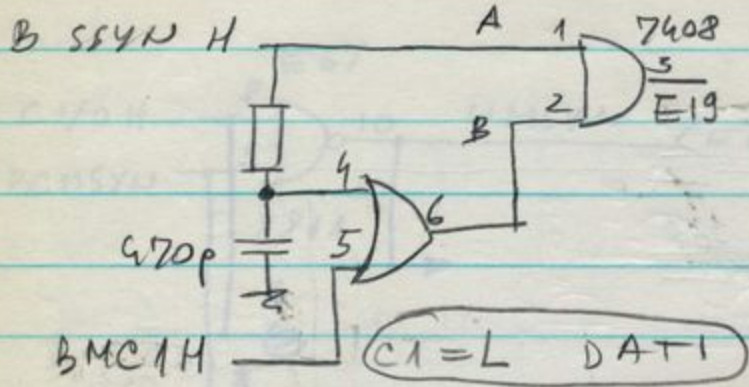 B SSYN H
A
1
7408
3
2
E19
B
4
6
470p
5
BMC1H
C1=L DATI